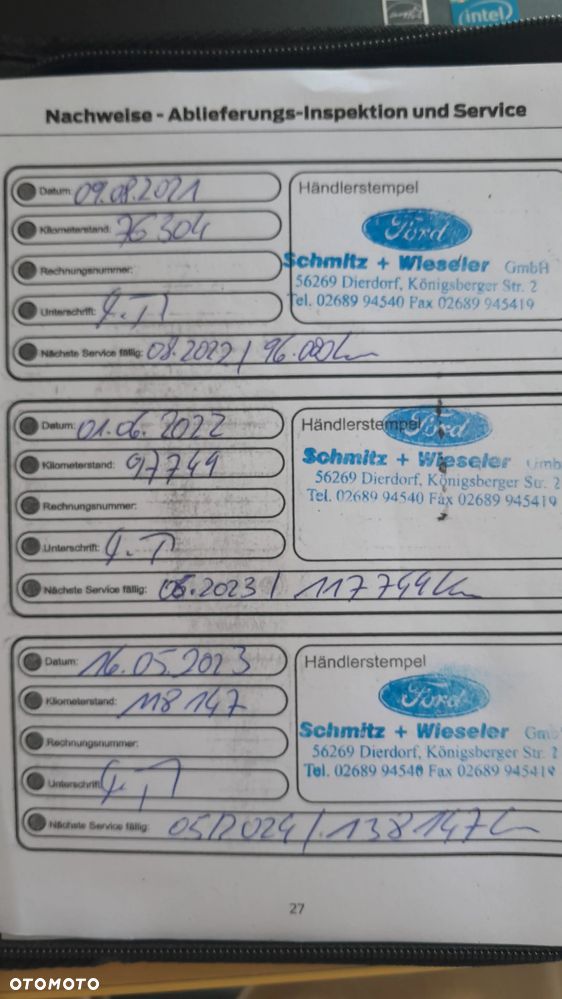 intel
Nachweise - Ablieferungs-Inspektion und Service
Datum: 09.08.2021
Kilometerstand: 76304
Rechnungsnummer:
Unterschrift:
Nächste Service fällig: 08.2022 / 96.000km
Händlerstempel
Ford
Schmitz + Wieseler GmbH
56269 Dierdorf, Königsberger Str. 2
Tel. 02689 94540 Fax 02689 945419
Datum: 01.06.2022
Kilometerstand: 97749
Rechnungsnummer:
Unterschrift:
Nächste Service fällig: 06.2023 / 117749km
Händlerstempel
Ford
Schmitz + Wieseler Gmb
56269 Dierdorf, Königsberger Str. 2
Tel. 02689 94540 Fax 02689 945419
Datum: 16.05.2023
Kilometerstand: 118147
Rechnungsnummer:
Unterschrift:
Nächste Service fällig: 05/2024 / 138147km
Händlerstempel
Ford
Schmitz + Wieseler Gmb
56269 Dierdorf, Königsberger Str. 2
Tel. 02689 94540 Fax 02689 945419
27
OTOMOTO